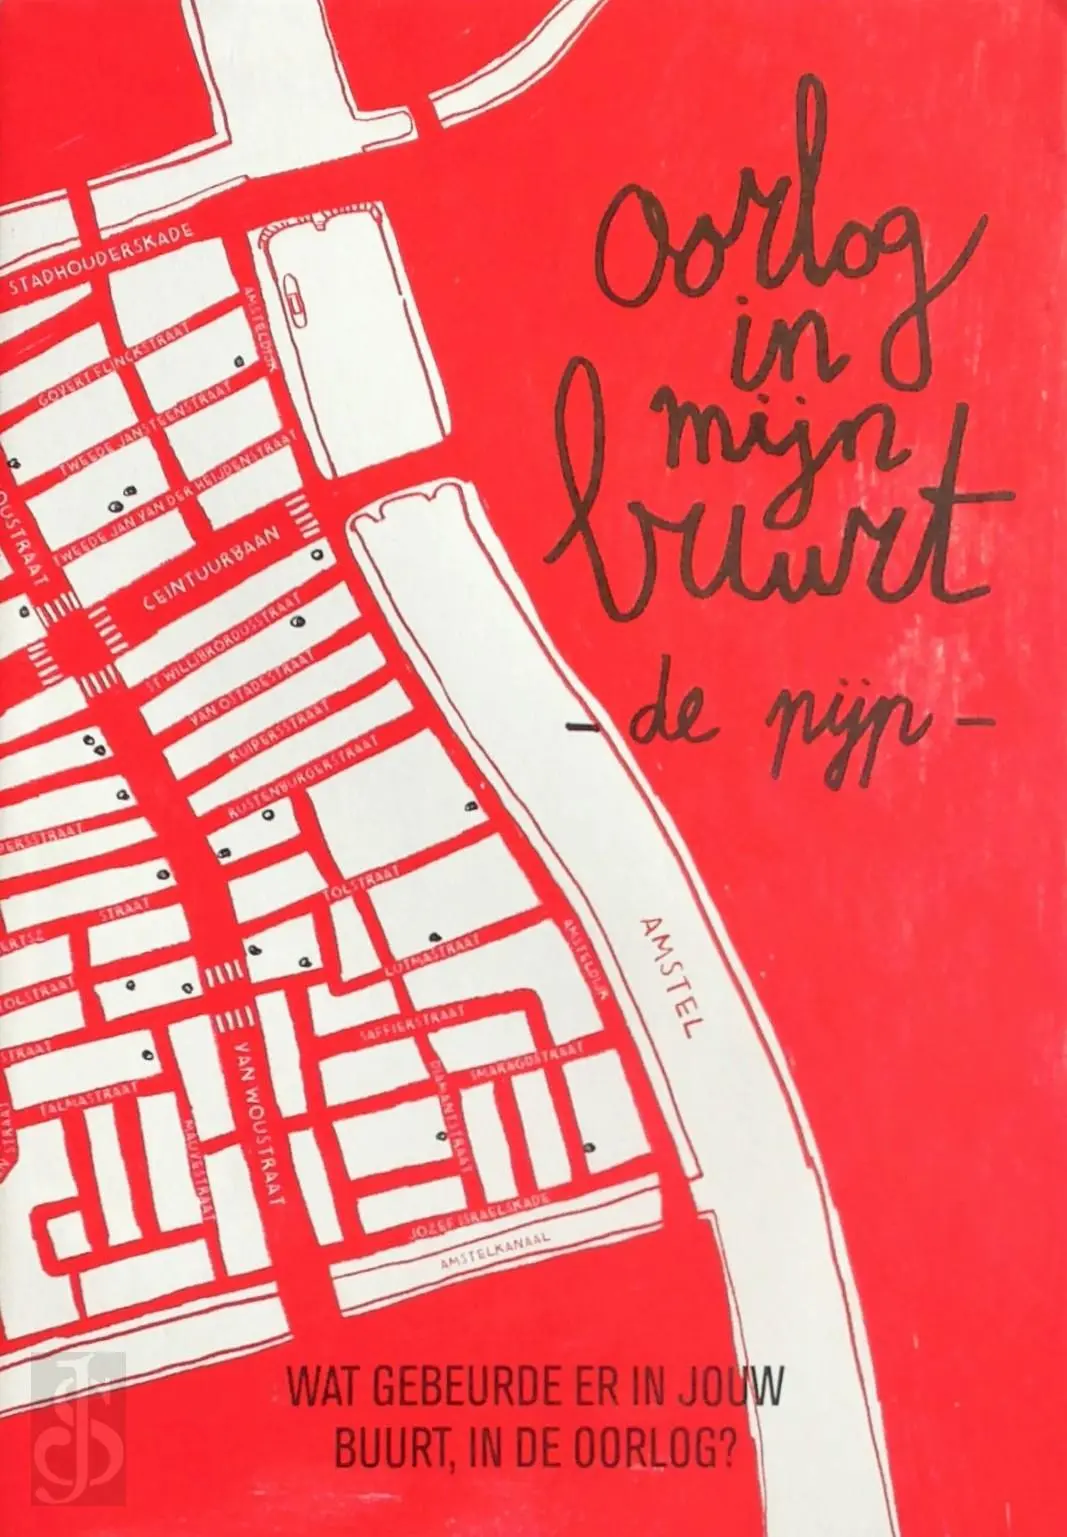 oorlog
in
mijn
buurt
- de pijp -
STADHOUDERSKADE
AMSTELDIJK
GOVERT FLINCKSTRAAT
TWEEDE JAN STEENSTRAAT
TWEEDE JAN VAN DER HEIJDENSTRAAT
OUSTRAAT
CEINTUURBAAN
ST WILLIBRORDUSSTRAAT
VAN OSTADESTRAAT
KUIPERSSTRAAT
RUSTENBURGERSTRAAT
PERSSTRAAT
TOLSTRAAT
STRAAT
ERTSZ
LUTMASTRAAT
AMSTELDIJK
AMSTEL
TOLSTRAAT
SAFFIERSTRAAT
STRAAT
SMARAGDSTRAAT
DIAMANTSTRAAT
VAN WOUSTRAAT
TALMASTRAAT
STRAAT
MAUVESTRAAT
JOZEF ISRAELSKADE
AMSTELKANAAL
WAT GEBEURDE ER IN JOUW
BUURT, IN DE OORLOG?